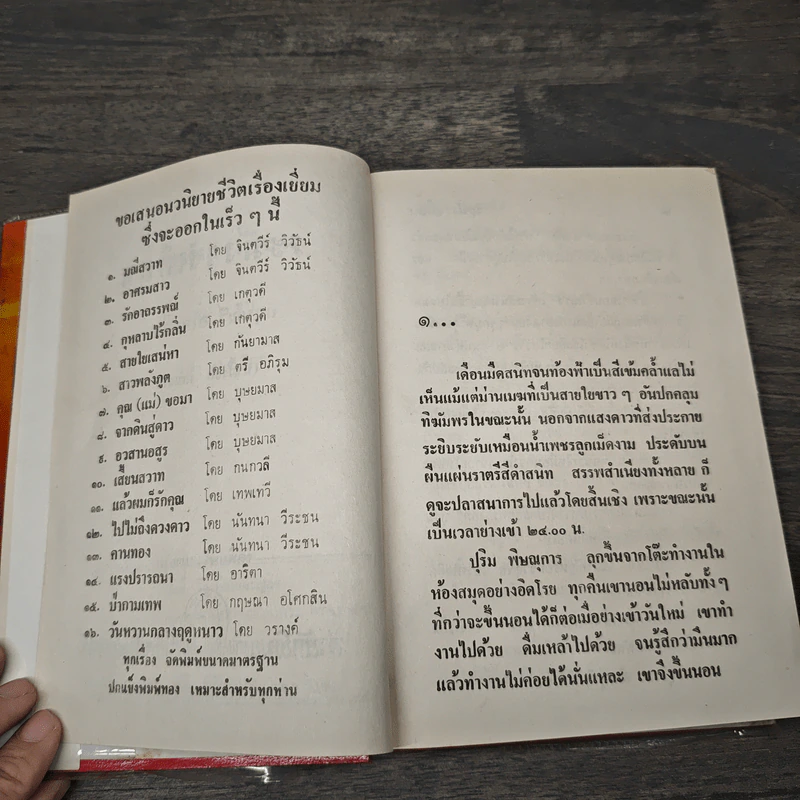 ขอเสนอนวนิยายชีวิตเรื่องเยี่ยม
ซึ่งจะออกในเร็ว ๆ นี้
๑. มณีสวาท โดย จินตวีร์ วิวัธน์
๒. อาศรมสาว โดย จินตวีร์ วิวัธน์
๓. รักอาถรรพณ์ โดย เกตุวดี
๔. กุหลาบไร้กลิ่น โดย เกตุวดี
๕. สายใยเสน่หา โดย กันยามาส
๖. สาวพลังภูต โดย ตรี อภิรุม
๗. คุณ (แม่) ขอมา โดย บุษยมาส
๘. จากดินสู่ดาว โดย บุษยมาส
๙. อวสานอสูร โดย บุษยมาส
๑๐. เสี้ยนสวาท โดย กนกวลี
๑๑. แล้วผมก็รักคุณ โดย เทพเทวี
๑๒. ไปไม่ถึงดวงดาว โดย นันทนา วีระชน
๑๓. คานทอง โดย นันทนา วีระชน
๑๔. แรงปรารถนา โดย อาริตา
๑๕. บ้ากามเทพ โดย กฤษณา อโศกสิน
๑๖. วันหวานกลางฤดูหนาว โดย วรางค์
ทุกเรื่อง จัดพิมพ์ขนาดมาตรฐาน
ปกแข็งพิมพ์ทอง เหมาะสำหรับทุกท่าน
๑...
เดือนมืดสนิทจนท้องฟ้าเป็นสีเข้มคล้ำแลไม่
เห็นแม้แต่ม่านเมฆที่เป็นสายใยขาว ๆ อันปกคลุม
ทิฆัมพรในขณะนั้น นอกจากแสงดาวที่ส่งประกาย
ระยิบระยับเหมือนน้ำเพชรลูกเม็ดงาม ประดับบน
ผืนแผ่นราตรีสีดำสนิท สรรพสำเนียงทั้งหลาย ก็
ดูจะปลาสนาการไปแล้วโดยสิ้นเชิง เพราะขณะนั้น
เป็นเวลาย่างเข้า ๒๔.๐๐ น.
ปุริม พิษณุการ ลุกขึ้นจากโต๊ะทำงานใน
ห้องสมุดอย่างอิดโรย ทุกคืนเขานอนไม่หลับทั้งๆ
ที่กว่าจะขึ้นนอนได้ก็ต่อเมื่อย่างเข้าวันใหม่ เขาทำ
งานไปด้วย ดื่มเหล้าไปด้วย จนรู้สึกว่ามึนมาก
แล้วทำงานไม่ค่อยได้นั่นแหละ เขาจึงขึ้นนอน